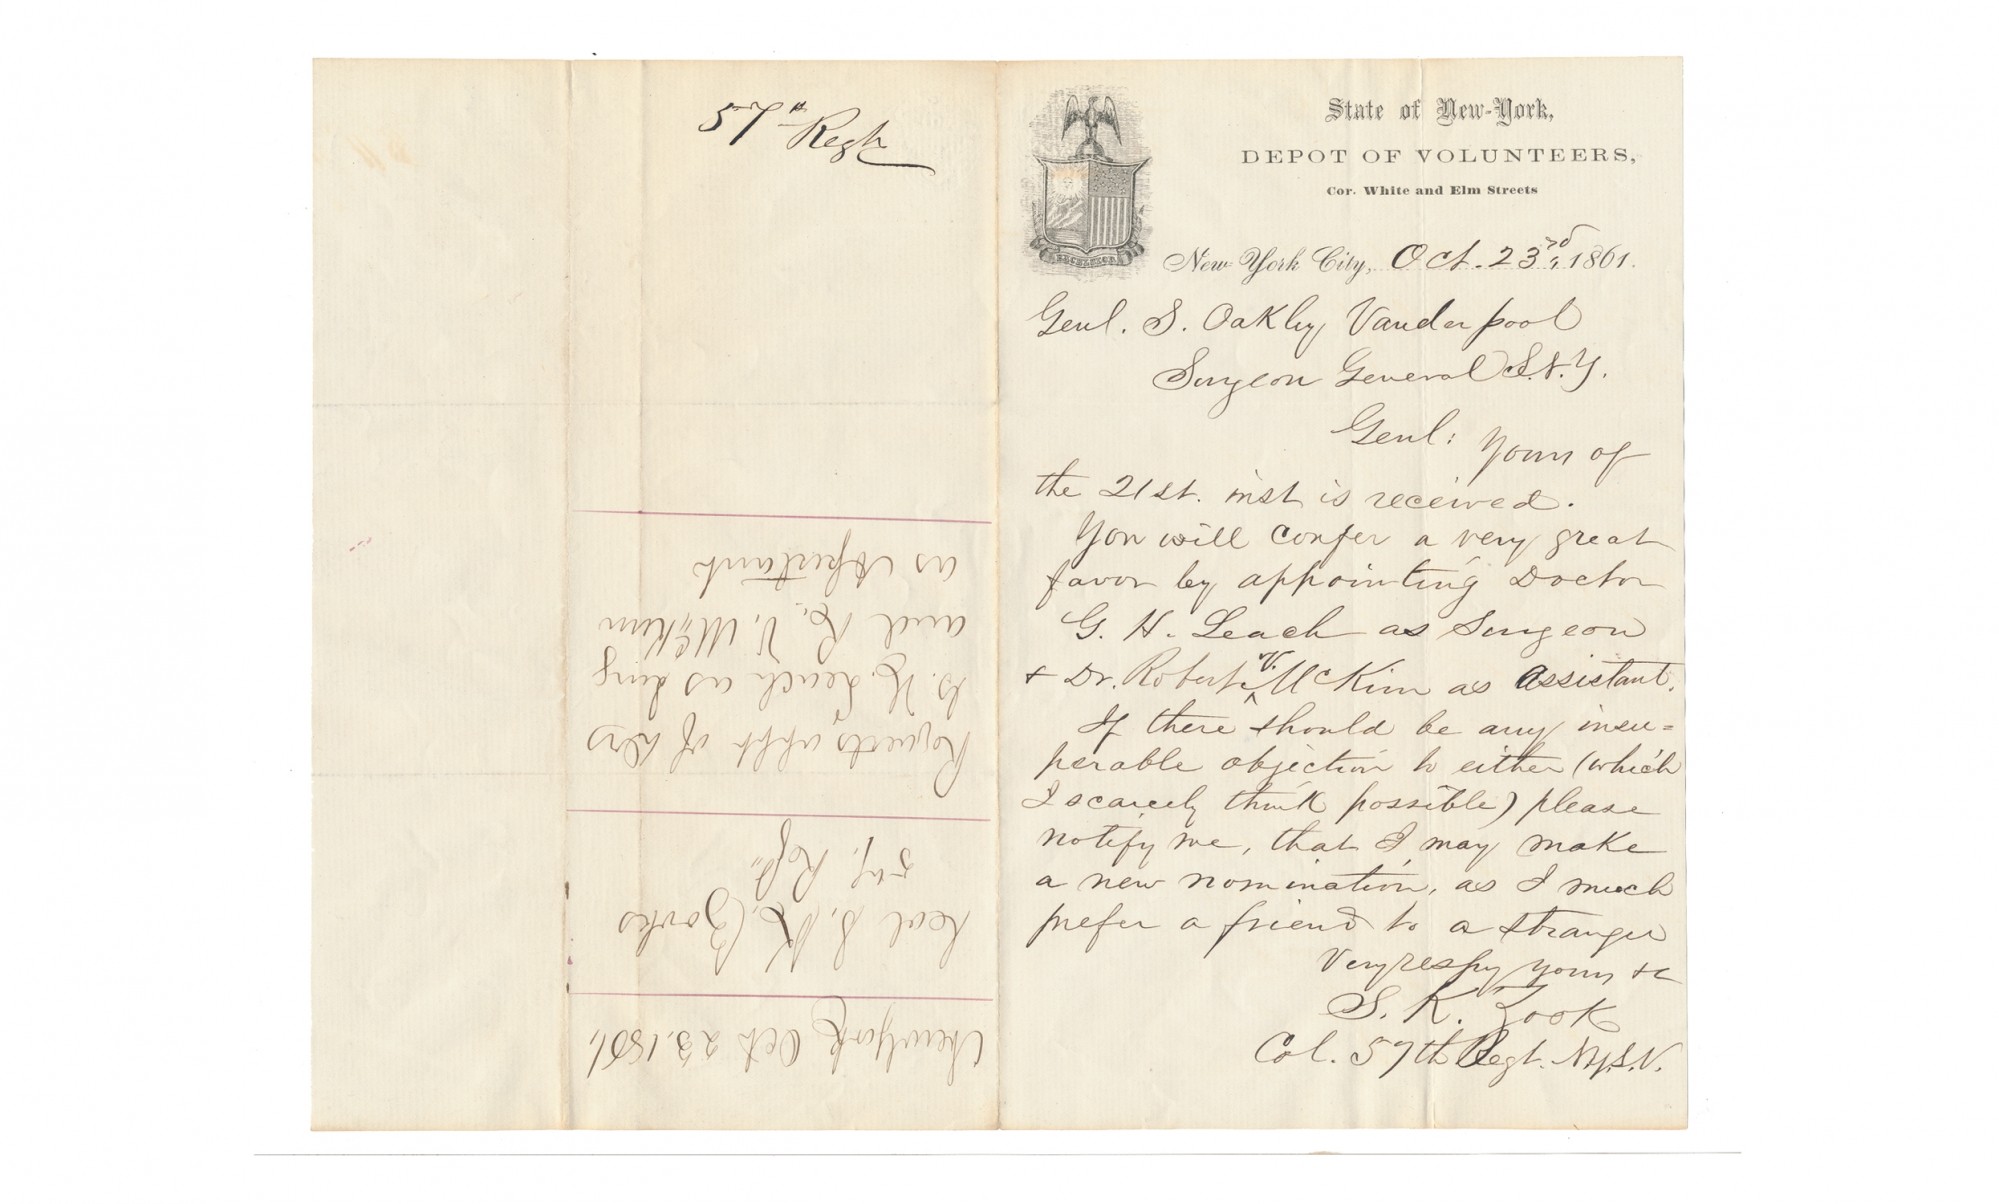 57th Regt
State of New-York,
DEPOT OF VOLUNTEERS,
Cor. White and Elm Streets
EXCELSIOR
New York City, Oct. 23rd, 1861.
Genl. S. Oakley Vanderpool
Surgeon General S.N.Y.
Genl: Yours of
the 21st. inst is received.
You will confer a very great
favor by appointing Doctor
G. H. Leach as Surgeon
& Dr. Robert V. McKim as assistant.
If there should be any insu=
perable objection to either (which
I scarcely think possible) please
notify me, that I may make
a new nomination, as I much
prefer a friend to a stranger
Very respy yours &c
S. K. Zook
Col. 57th Regt. N.Y.S.V.
New York Oct 23, 1861,
Col S. K. Zooks
57. Regt,
Requests appt of Drs
G. H. Leach as Surg
and R. V. McKim
as Assistant